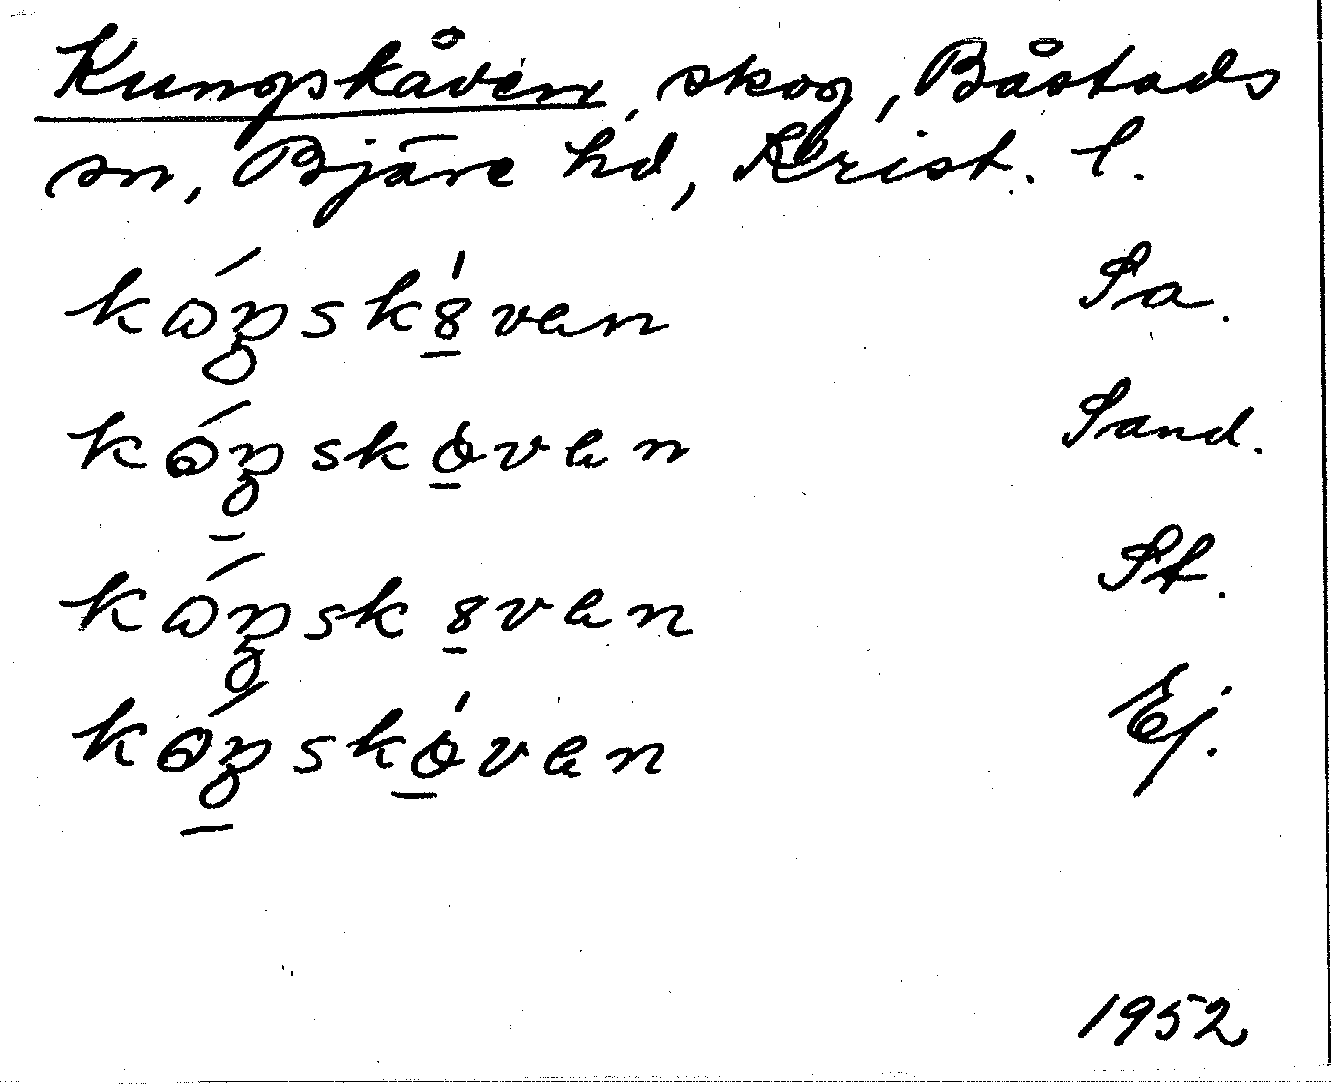 Kungskåven, skog, Båstads
sn, Bjäre hd, Krist. l.
kóŋsk8̱́van Sa.
kóŋskó̱van Sand.
kóŋsk8̱van St.
kóŋskó̱van Ej.
1952